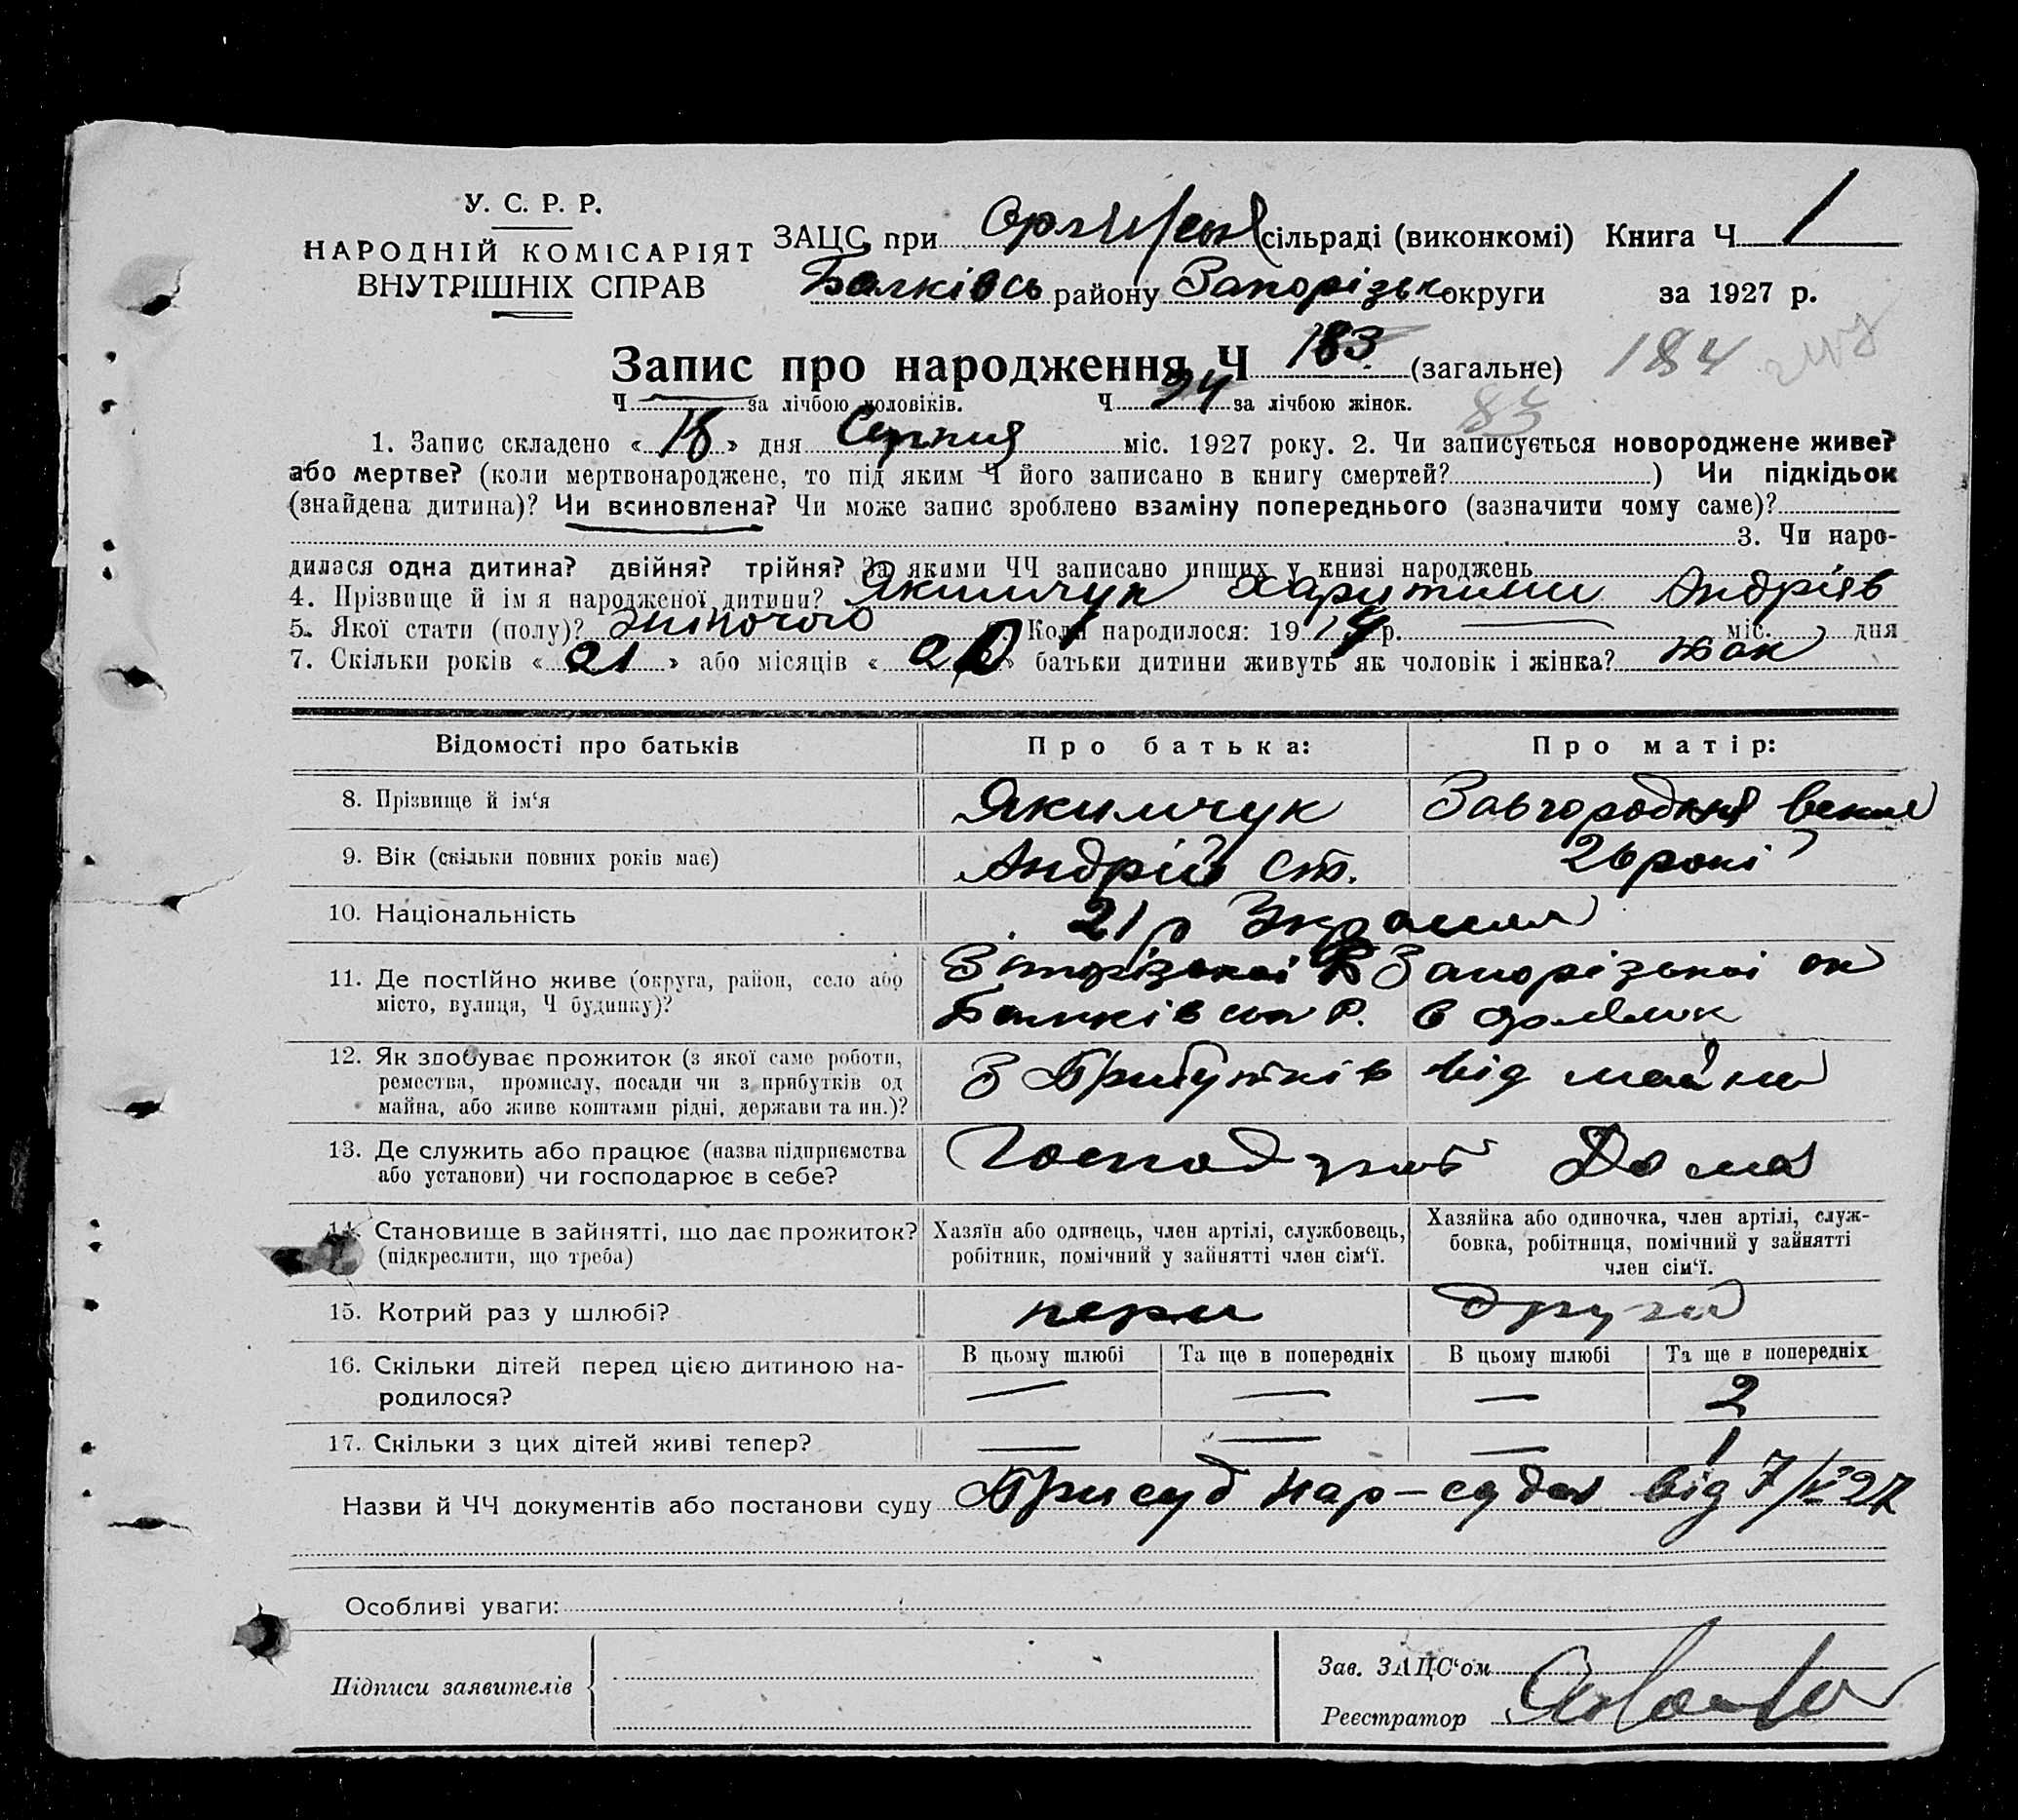 У. С. Р. Р.
НАРОДНІЙ КОМІСАРІЯТ
ВНУТРІШНІХ СПРАВ
ЗАЦС при сільраді (виконкомі) Книга Ч 1
Балківсь району Запорізьк округи за 1927 р.
Запис про народження Ч 183 (загальне) 184
Ч — за лічбою чоловіків. Ч 94 за лічбою жінок. 85
1. Запис складено « 18 » дня Серпня міс. 1927 року. 2. Чи записується новороджене живе?
або мертве? (коли мертвонароджене, то під яким Ч його записано в книгу смертей? ) Чи підкідьок
(знайдена дитина)? Чи всиновлена? Чи може запис зроблено взаміну попереднього (зазначити чому саме)?
3. Чи наро-
дилася одна дитина? двійня? трійня? За якими ЧЧ записано инших у книзі народжень
4. Прізвище й ім я народженої дитини? Якимчук Харитини Андріїв
5. Якої стати (полу)? жіночого Коли народилося: 19 14 р. — міс. дня
7. Скільки років « 21 » або місяців « 26 » батьки дитини живуть як чоловік і жінка?
Відомості про батьків
Про батька:
Про матір:
8. Прізвище й ім‘я
Якимчук
Завгородня
9. Вік (скільки повних років має)
Андрій Ст.
26 рокі
10. Національність
21 р Україн
11. Де постІйно живе (округа, район, село або
місто, вулиця, Ч будинку)?
Запорізької Запорізької ок
Балківськ Р. с
12. Як здобуває прожиток (з якої саме роботи,
ремества, промислу, посади чи з прибутків од
майна, або живе коштами рідні, держави та ин.)?
З Прибутків від майна
13. Де служить або працює (назва підприємства
або установи) чи господарює в себе?
Дома
14. Становище в зайнятті, що дає прожиток?
(підкреслити, що треба)
Хазяїн або одинець, член артілі, службовець,
робітник, помічний у зайнятті член сім‘ї.
Хазяйка або одиночка, член артілі, служ-
бовка, робітниця, помічний у зайнятті
член сім‘ї.
15. Котрий раз у шлюбі?
перш
другий
16. Скільки дітей перед цією дитиною на-
родилося?
В цьому шлюбі
Та ще в попередніх
В цьому шлюбі
Та ще в попередніх
— — — 2
17. Скільки з цих дітей живі тепер?
— — — 1
Назви й ЧЧ документів або постанови суду Присуд нар-суда від 7/V 27
Особливі уваги:
Підписи заявителів
Зав. ЗАЦС‘ом
Реєстратор